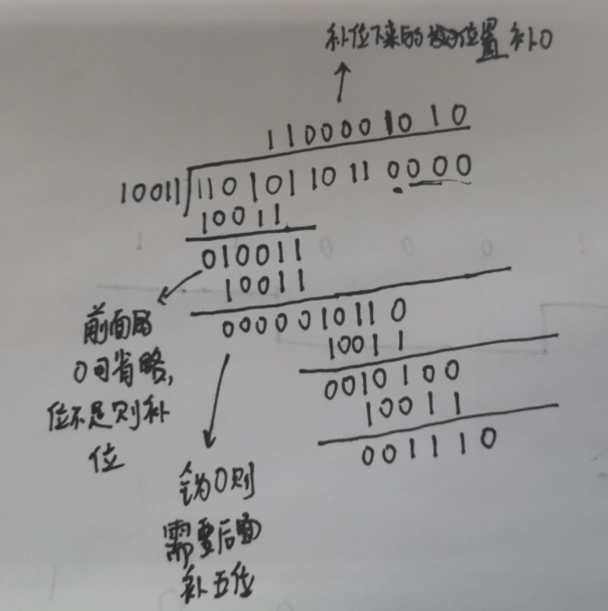 补位下来的数的位置补0
1100001010
10011 11010110110000
10011
010011
10011
0000010110
10011
0010100
10011
001110
前面为
0可省略,
位不足则补
位
全为0则
需要后面
补五位